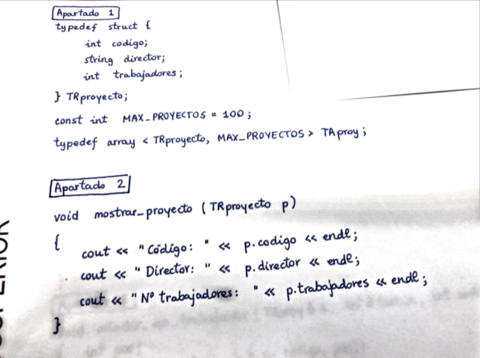 Apartado 1
typedef struct {
int codigo;
string director;
int trabajadores;
} TRproyecto;
const int MAX_PROYECTOS = 100;
typedef array < TRproyecto, MAX_PROYECTOS > TAproy;
Apartado 2
void mostrar_proyecto (TRproyecto p)
{
cout << "Código: " << p.codigo << endl;
cout << "Director: " << p.director << endl;
cout << "Nº trabajadores: " << p.trabajadores << endl;
}